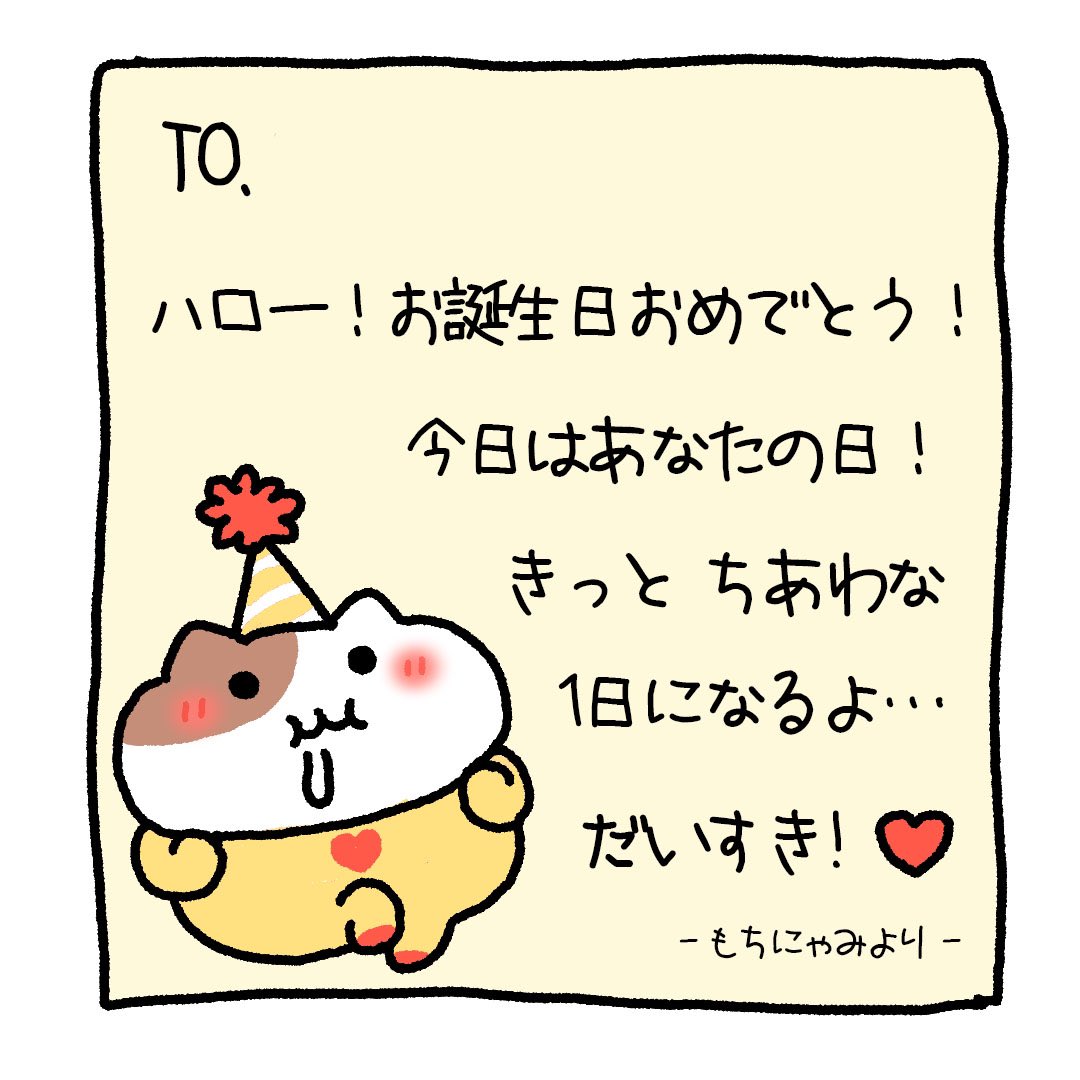 TO.
ハロー！お誕生日おめでとう！
今日はあなたの日！
きっと ちあわな
1日になるよ…
だいすき！
-もちにゃみより-